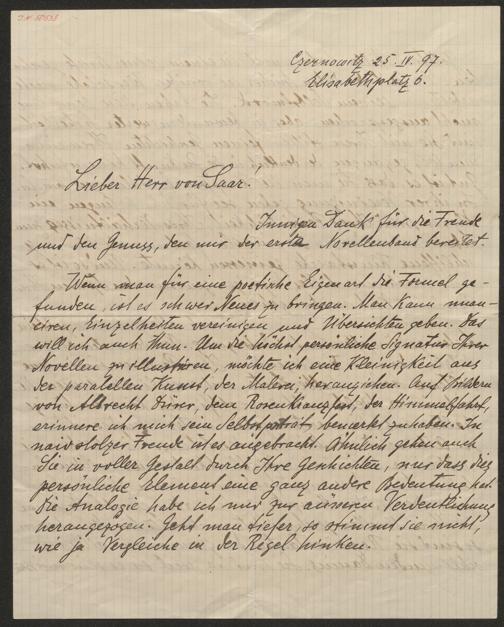 Czernowitz 25. IV. 97.
Elisabethplatz 6.
Lieber Herr von Saar!
Innigen Dank für die Freude
und den Genuss, den mir der erste Novellenband bereitet.
Wenn man für eine poetische Eigenart die Formel ge-
funden, ist es schwer Neues zu bringen. Man kann
, Einzelheiten vereinigen und Übersichten geben. Das
will ich auch thun. Um die höchst persönliche Signatur Ihrer
Novellen zu illustriren, möchte ich eine Kleinigkeit aus
der parallelen Kunst, der Malerei, heranziehen. Auf Bildern
von Albrecht Dürer, dem Rosenkranzfest, der Himmelfahrt,
erinnere ich mich sein Selbstportrait bemerkt zu haben. In
naiv stolzer Freude ist es angebracht. Ähnlich gehen auch
Sie in voller Gestalt durch Ihre Geschichten, nur dass dies
persönliche Element eine ganz andere Bedeutung hat.
Die Analogie habe ich nur zur äusseren Verdeutlichung
herangezogen. Geht man tiefer, so stimmt sie nicht,
wie ja Vergleiche in der Regel hinken.